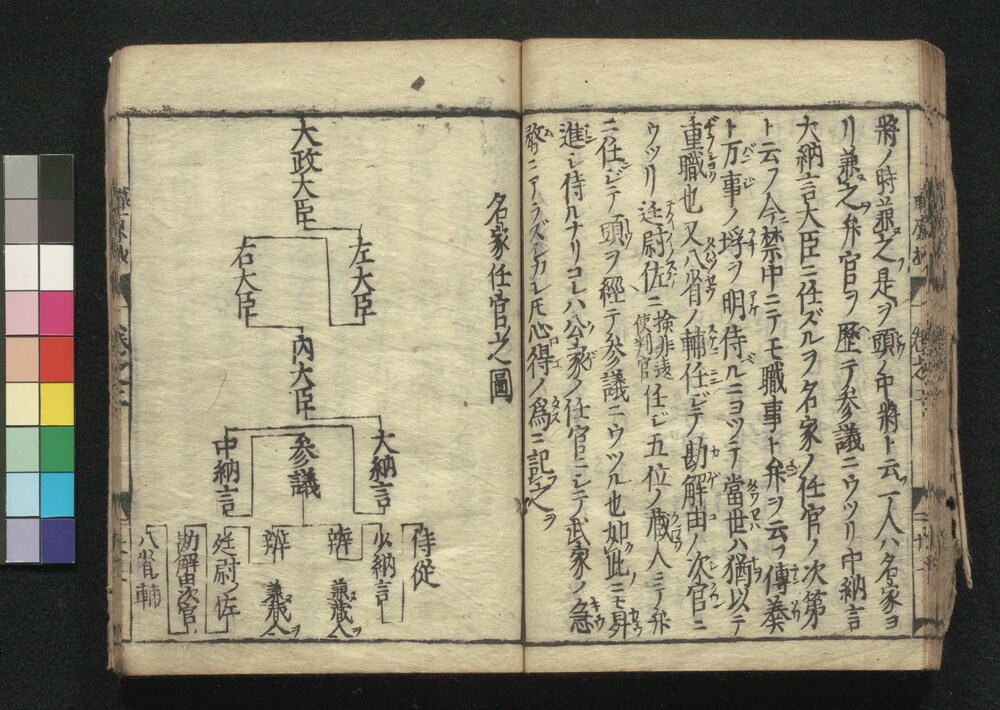 將ノ時兼之是ヲ頭ノ中將ト云一人ハ名家ヨ
リ兼之弁官ヲ歴テ参議ニウツリ中納言
大納言大臣ニ任ズルヲ名家ノ任官ノ次第
ト云フ今禁中ニテモ職事ト弁ヲ云フ傳奏
ト万事ノ埒ヲ明侍ルニヨツテ當世ハ猶以テ
重職也又八省ノ輔任ジテ勘解由ノ次官ニ
ウツリ廷尉佐ニ検非違使判官任ジ五位ノ蔵人ニテ弁
ニ任ジテ頭ヲ經テ参議ニウツル也如此ニモ昇
進シ侍ルナリコレハ公家ノ任官ニシテ武家ノ急
務ニアラズシカレ𪜈心得ノ為ニ記之
名家任官之圖
大政大臣
左大臣
右大臣
內大臣
大納言
参議
中納言
侍従
少納言
辨 兼蔵人ヲ
辨 兼蔵人ヲ
廷尉ノ佐
勘解由次官
八省輔